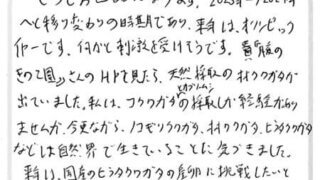 へと移り変わりの時期であり、来年は、オリンピック
イヤーです。何かと刺激を受けそうです。
きのこ園さんのHPを見たら、天然採取のオオクワガタが
出ていました。私は、コクワガタの採取しか経験があり
ませんが、今更ながら、ノコギリクワガタ、オオクワガタ、ヒラタクワガタ
などは自然界で生きていることに気づきました。
来年は、国産のヒラタクワガタの産卵に挑戦したいと